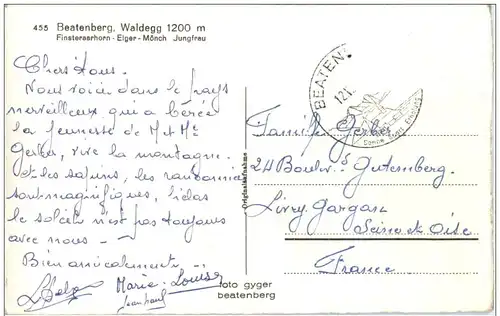 455 Beatenberg, Waldegg 1200 m
Finsteraarhorn - Eiger - Mönch Jungfrau
Chers tous.
Nous voici dans le pays
merveilleux qui a bercé
la jeunesse de M et Me
Gerber, vive la montagne
et les sapins, les randonnées
sont magnifiques, hélas
le soleil n'est pas toujours
avec nous -
Bien amicalement
Marie-Louise
Jean Paul
foto gyger
beatenberg
Originalaufnahme
BEATEN
121
Famille Gerber
24 Boulev. Gutemberg.
Livry. Gargan
Seine et Oise
France